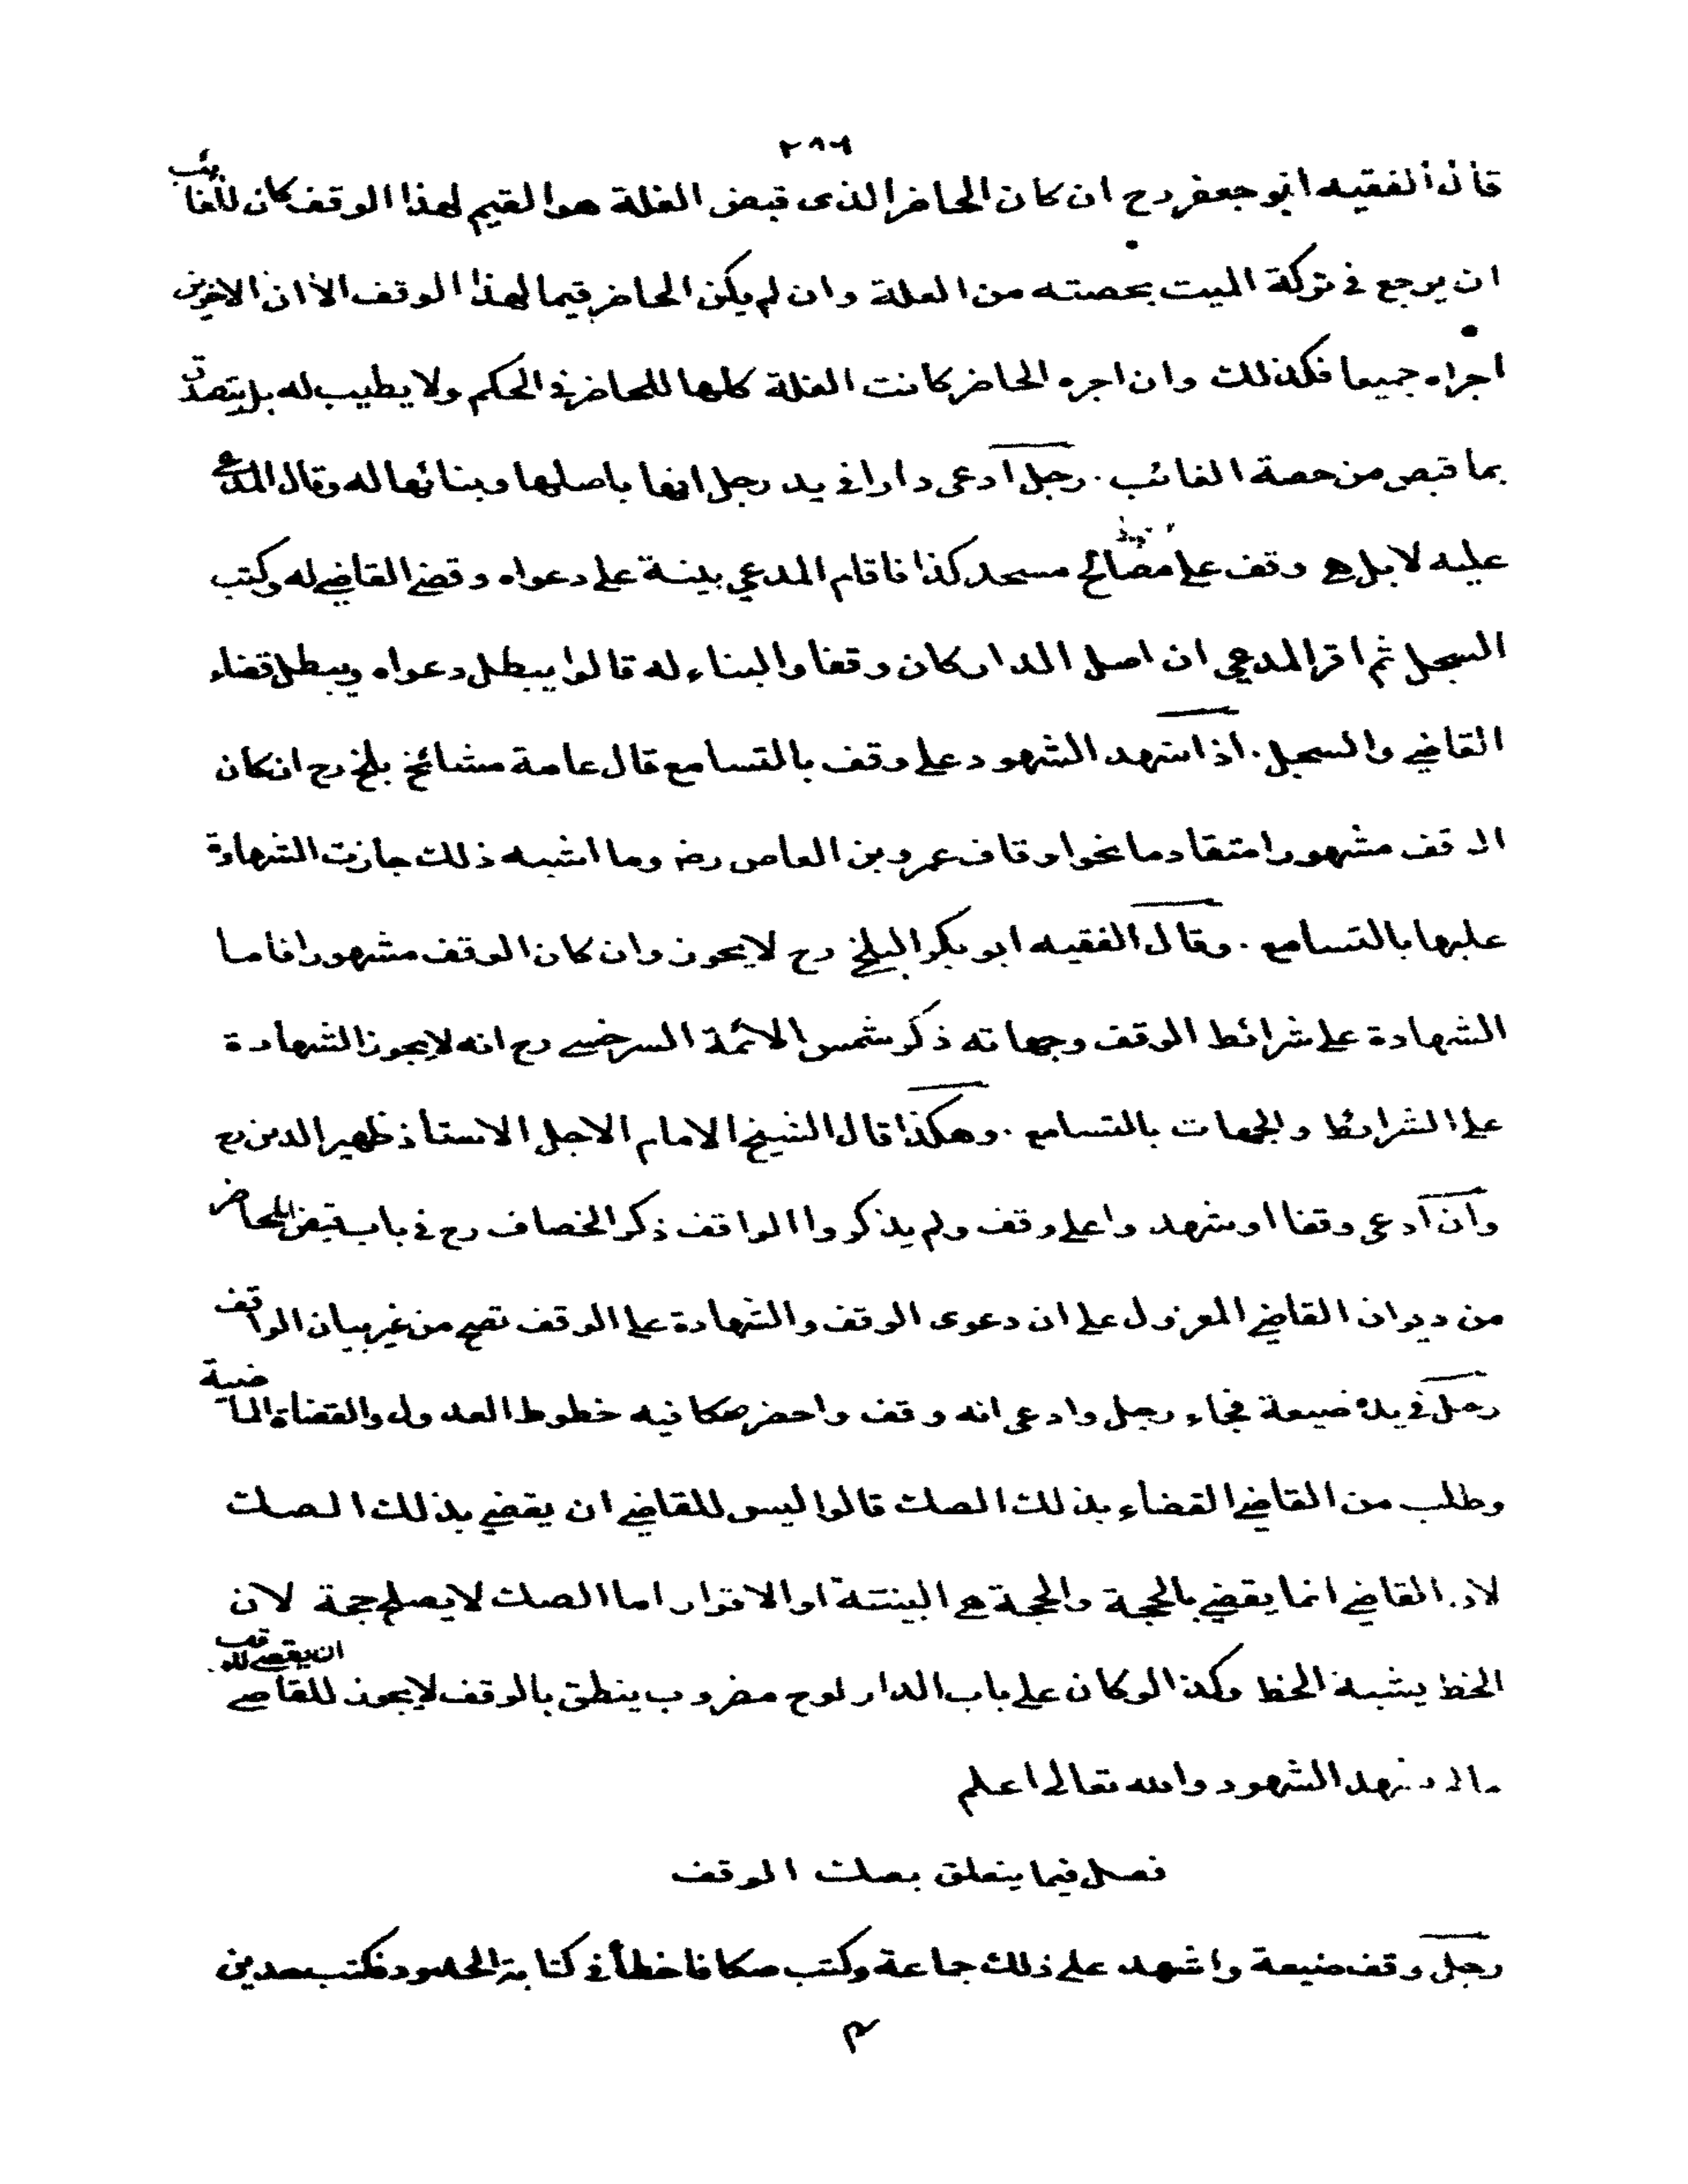 ٢٨٦
قال الفقيه ابو جعفر رح ان كان الحاضر الذى قبض الغلة هو القيم لهذا الوقف كان للغائب
ان يرجع فى تركة الميت بحصته من الغلة وان لم يكن الحاضر قيما لهذا الوقف الا ان الاخوين
اجراه جميعا فكذلك وان اجره الحاضر كانت الغلة كلها للحاضر فى الحكم ولا يطيب له بل يتصدق
بما قبض من حصة الغائب . رجل ادعى دارا فى يد رجل انها باصلها وبنائها له وقال المدعى
عليه لا بل هى وقف على مصالح مسجد كذا فاقام المدعي بينة على دعواه وقضى القاضي له وكتب
السجل ثم اقر المدعي ان اصل الدار كان وقفا والبناء له قالوا يبطل دعواه ويبطل قضاء
القاضي والسجل . اذا شهد الشهود على وقف بالتسامع قال عامة مشائخ بلخ رح ان كان
الوقف مشهورا متقادما نحو اوقاف عمرو بن العاص رضه وما اشبه ذلك جازت الشهادة
عليها بالتسامع . وقال الفقيه ابو بكر البلخي رح لا يجوز وان كان الوقف مشهورا فاما
الشهادة على شرائط الوقف وجهاته ذكر شمس الائمة السرخسي رح انه لا يجوز الشهادة
على الشرائط والجهات بالتسامع . وهكذا قال الشيخ الامام الاجل الاستاذ ظهير الدين رح
وان ادعى وقفا او شهدوا على وقف ولم يذكروا الواقف ذكر الخصاف رح فى باب قبض المحاضر
من ديوان القاضي المعزول على ان دعوى الوقف والشهادة على الوقف تصح من غير بيان الواقف
رجل فى يده ضيعة فجاء رجل وادعى انه وقف واحضر صكا فيه خطوط العدول والقضاة الماضية
وطلب من القاضي القضاء بذلك الصك قالوا ليس للقاضي ان يقضي بذلك الصك
لان القاضي انما يقضي بالحجة والحجة هى البينة او الاقرار اما الصك لا يصلح حجة لان
الخط يشبه الخط وكذا لو كان على باب الدار لوح مضروب ينطق بالوقف لا يجوز للقاضي ان يقضي للوقف
ما لم يشهد الشهود والله تعالى اعلم
فصل فيما يتعلق بصك الوقف
رجل وقف ضيعة واشهد على ذلك جماعة وكتب صكا فاخطأ فى كتابة الحدود فكتب حدين
م